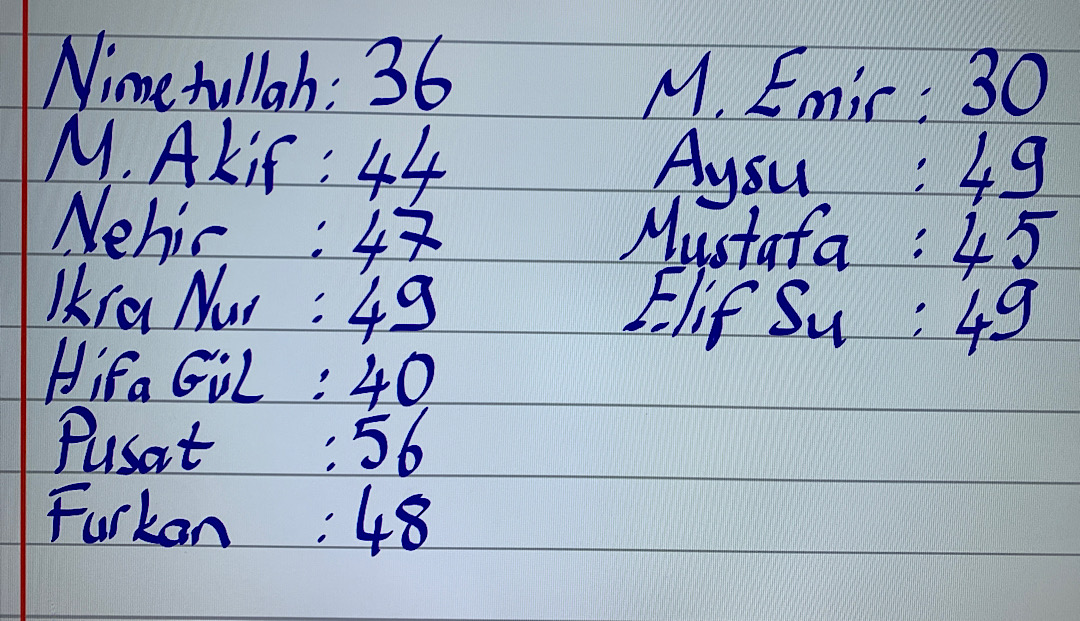 Nimetullah: 36
M. Akif : 44
Nehir : 47
Ikra Nur : 49
Hifa Gül : 40
Pusat : 56
Furkan : 48
M. Emir : 30
Aysu : 49
Mustafa : 45
Elif Su : 49